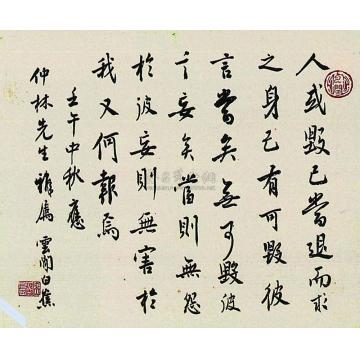 人或毀己當退而求
之身己有可毀彼
言當矣無可毀彼
言妄矣當則無怨
於彼妄則無害於
我又何報焉
壬午中秋應
仲林先生雅屬 雲間白蕉